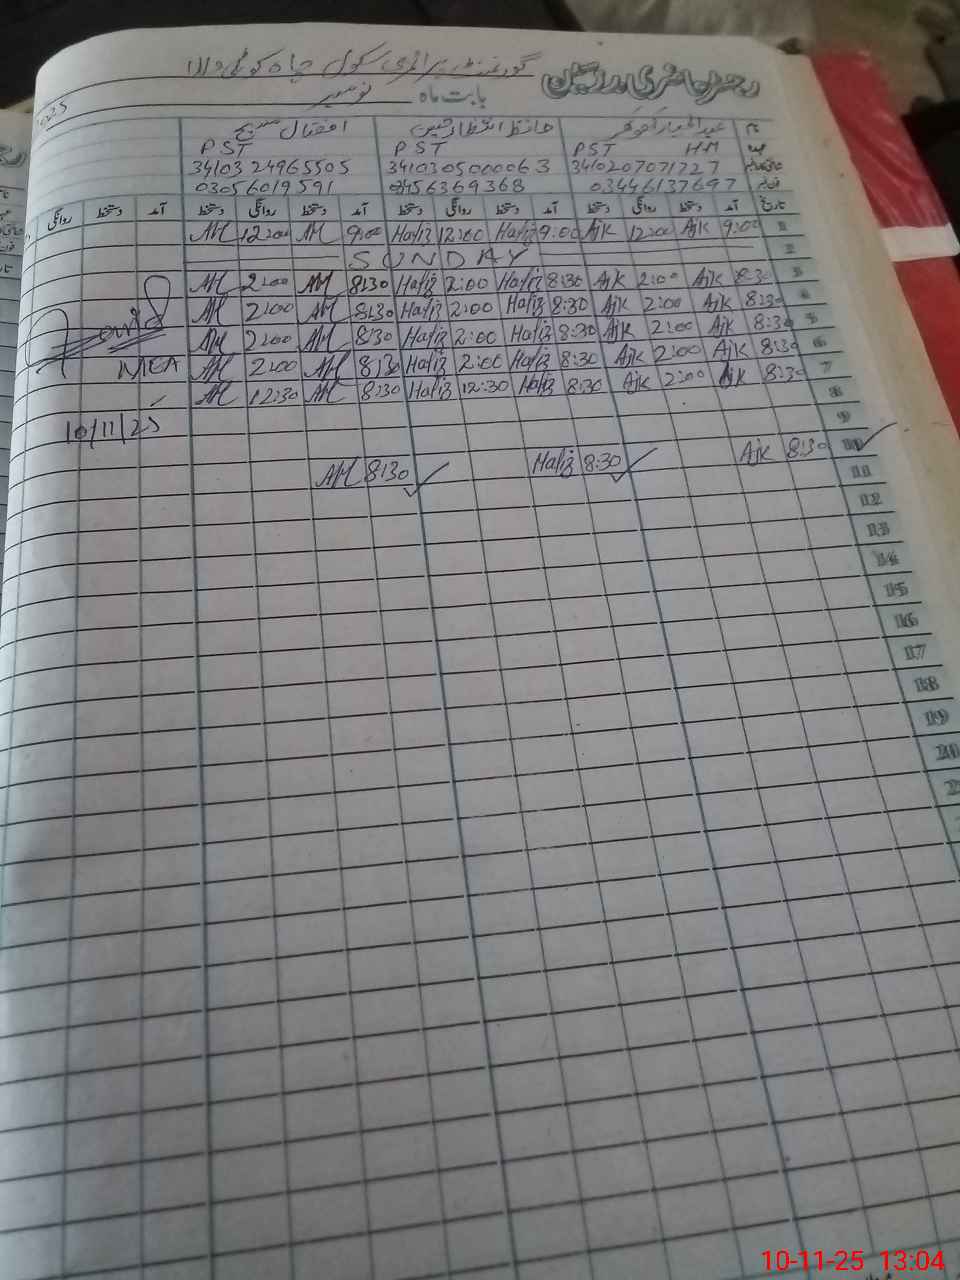 رجسٹر حاضری مدرسین گورنمنٹ پرائمری سکول چاہ
بابت ماہ نومبر
نام عبدالجبار حافظ انتظار حسین افضال مسیح
HM PST PST PST
3410207071727 3410305000063 3410324965505
03446137697 03456369368 03056019591
تاریخ آمد دستخط روانگی دستخط آمد دستخط روانگی دستخط آمد دستخط روانگی دستخط آمد دستخط روانگی
1 9:00 Ajk 12:00 Ajk 9:00 Hafiz 12:00 Hafiz 9:00 AM 12:00 AM
2 SUNDAY
3 8:30 Ajk 2:00 Ajk 8:30 Hafiz 2:00 Hafiz 8:30 AM 2:00 AM
4 8:30 Ajk 2:00 Ajk 8:30 Hafiz 2:00 Hafiz 8:30 AM 2:00 AM
5 8:30 Ajk 2:00 Ajk 8:30 Hafiz 2:00 Hafiz 8:30 AM 2:00 AM
6 8:30 Ajk 2:00 Ajk 8:30 Hafiz 2:00 Hafiz 8:30 AM 2:00 AM
7 8:30 Ajk 2:00 Ajk 8:30 Hafiz 12:30 Hafiz 8:30 AM 12:30 AM
MEA
8
10/11/25
9
10 8:30 Ajk 8:30 Hafiz 8:30 AM
11
12
13
14
15
16
17
18
19
20
10-11-25 13:04